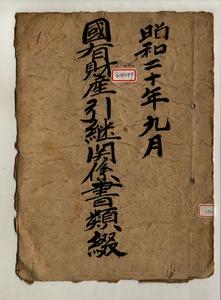 昭和二十年九月
國有財産引継関係書類綴